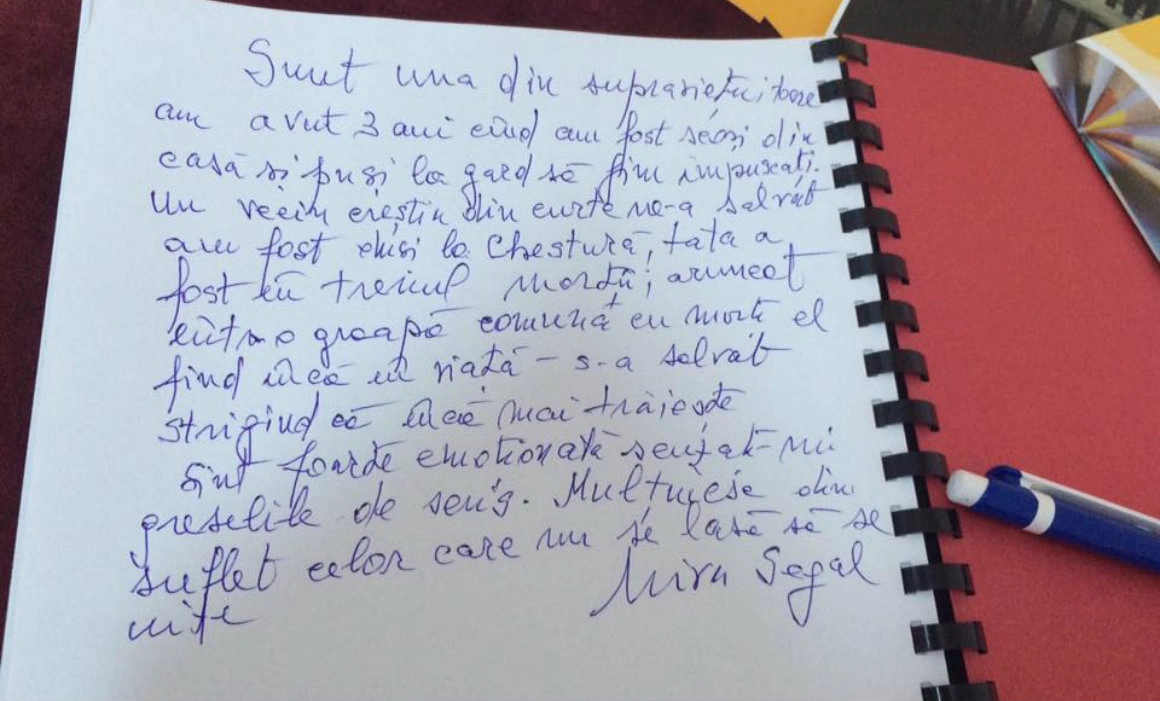 Sunt una din supraviețuitoare
am avut 3 ani cînd am fost scoși din
casă și puși la gard să fim impuscați.
Un vecin creștin din curte ne-a salvat
am fost duși la Chestură, tata a
fost cu trenul morții; aruncat
într-o groapă comună cu morți el
fiind încă în viață – s-a salvat
strigînd că încă mai trăiește
Sînt foarte emoționată scuzați-mi
greselile de scris. Multumesc din
suflet celor care nu se lasă să se
uite
Segal